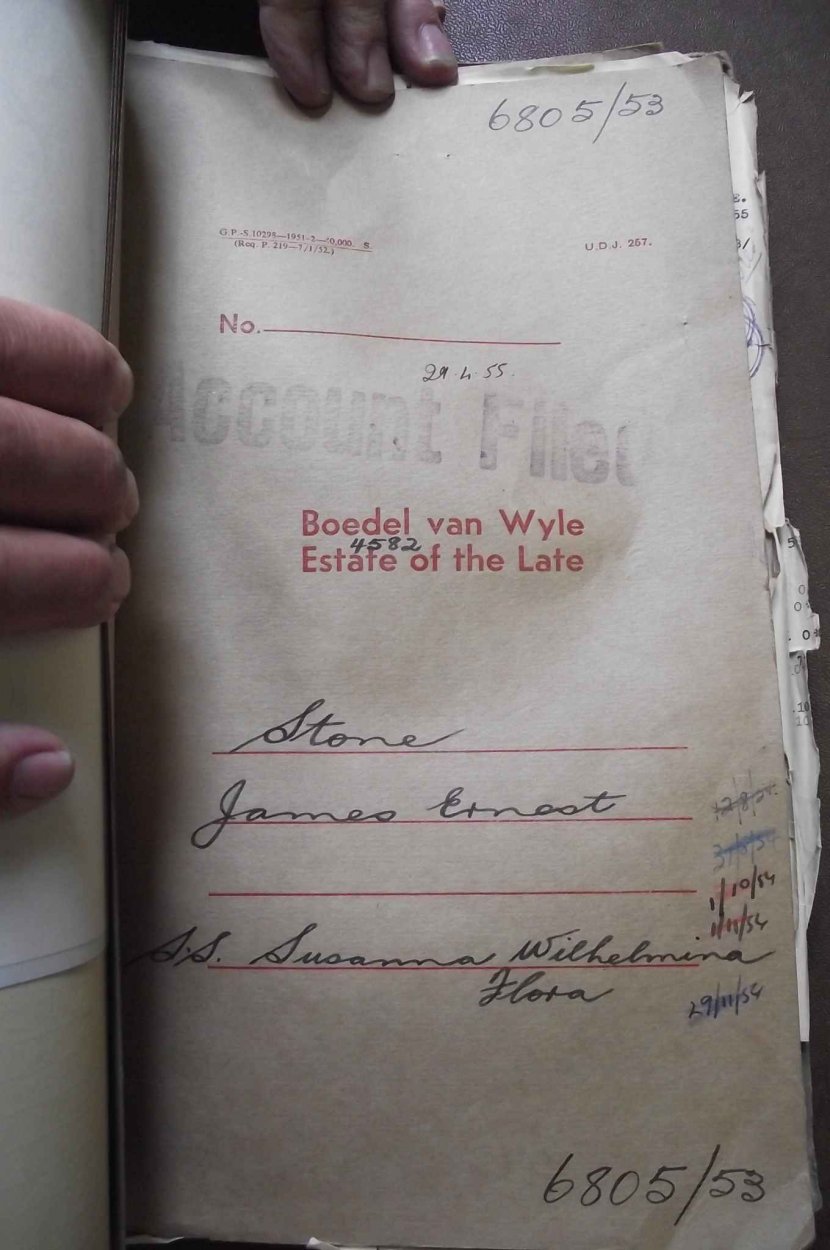 6805/53
G.P.-S.10298—1951-2—10,000. S.
(Req. P. 219—7/1/52.)
U.D.J. 257.
No.
29.4.55.
Account Filed
Boedel van Wyle
4582
Estate of the Late
Stone
James Ernest
1/10/54
1/11/54
S.S. Susanna Wilhelmina
Flora
29/11/54
6805/53